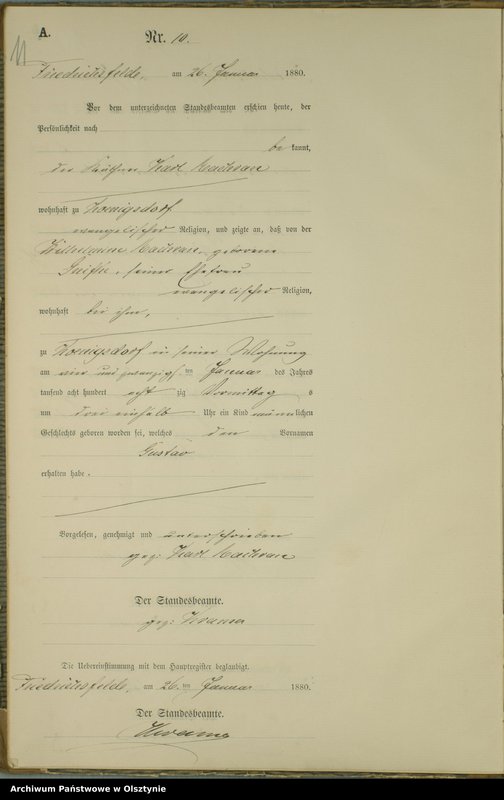 A.
Nr. 10.
11
Friedrichsfelde, am 26. Januar 1880.
Vor dem unterzeichneten Standesbeamten erschien heute, der
Persönlichkeit nach
be kannt,
der Käthner Karl
wohnhaft zu Koenigsdorf
evangelischer Religion, und zeigte an, daß von der
Wilhelmine geborene
seiner Ehefrau
evangelischer Religion,
wohnhaft bei ihm,
zu Koenigsdorf in seiner Wohnung
am vier und zwanzig ten Januar des Jahres
tausend acht hundert acht zig Vormittag s
um drei einhalb Uhr ein Kind männlichen
Geschlechts geboren worden sei, welches den Vornamen
Gustav
erhalten habe.
Vorgelesen, genehmigt und unterschrieben
gez: Karl
Der Standesbeamte.
gez:
Die Uebereinstimmung mit dem Hauptregister beglaubigt.
Friedrichsfelde, am 26. ten Januar 1880.
Der Standesbeamte.
Archiwum Państwowe w Olsztynie